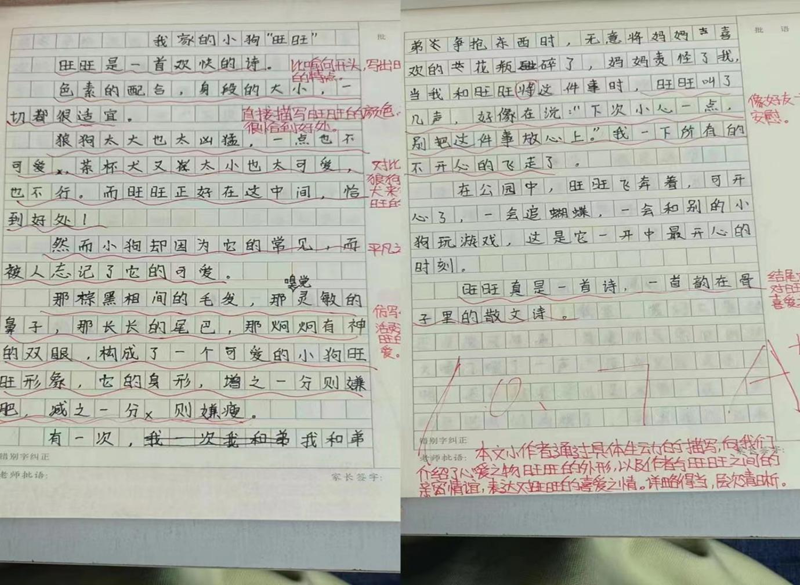 我家的小狗"旺旺"
旺旺是一首欢快的诗。
色素的配合,身段的大小,一
切都很适宜。
狼狗太大也太凶猛,一点也不
可爱。茶杯犬又太小也太可爱,
也不行。而旺旺正好在这中间,恰
到好处!
然而小狗却因为它的常见,而
被人忘记了它的可爱。
嗅觉
那棕黑相间的毛发,那灵敏的
鼻子,那长长的尾巴,那炯炯有神
的双眼,构成了一个可爱的小狗旺
旺形象,它的身形,增之一分则嫌
肥,减之一分则嫌瘦。
有一次,我一次我和弟我和弟
错别字纠正
老师批语:
家长签字:
比喻句开头,写出旺
的特点。
直接描写旺旺的颜色,
很恰到好处。
对比
狼狗
犬来
旺的
平凡之
仿写
活泼
旺的
爱。
批
弟争抢东西时,无意将妈妈喜
欢的花瓶碰碎了,妈妈责怪了我,
当我和旺旺这件事时,旺旺叫了
几声,好像在说:"下次小心一点,
别把这件事放心上。"我一下所有的
不开心的飞走了。
在公园中,旺旺飞奔着,可开
心了,一会追蝴蝶,一会和别的小
狗玩游戏,这是它一天中最开心的
时刻。
旺旺真是一首诗,一首韵在骨
子里的散文诗。
批 语
像好友一
安慰。
结尾
对旺
喜爱
10.7
A+
错别字纠正
本文小作者通过具体生动的描写,向我们
介绍了心爱之物旺旺的外形,以及作者与旺旺之间的
亲密情谊,表达对旺旺的喜爱之情。详略得当,层次清晰。
老师批语:
家长签字: